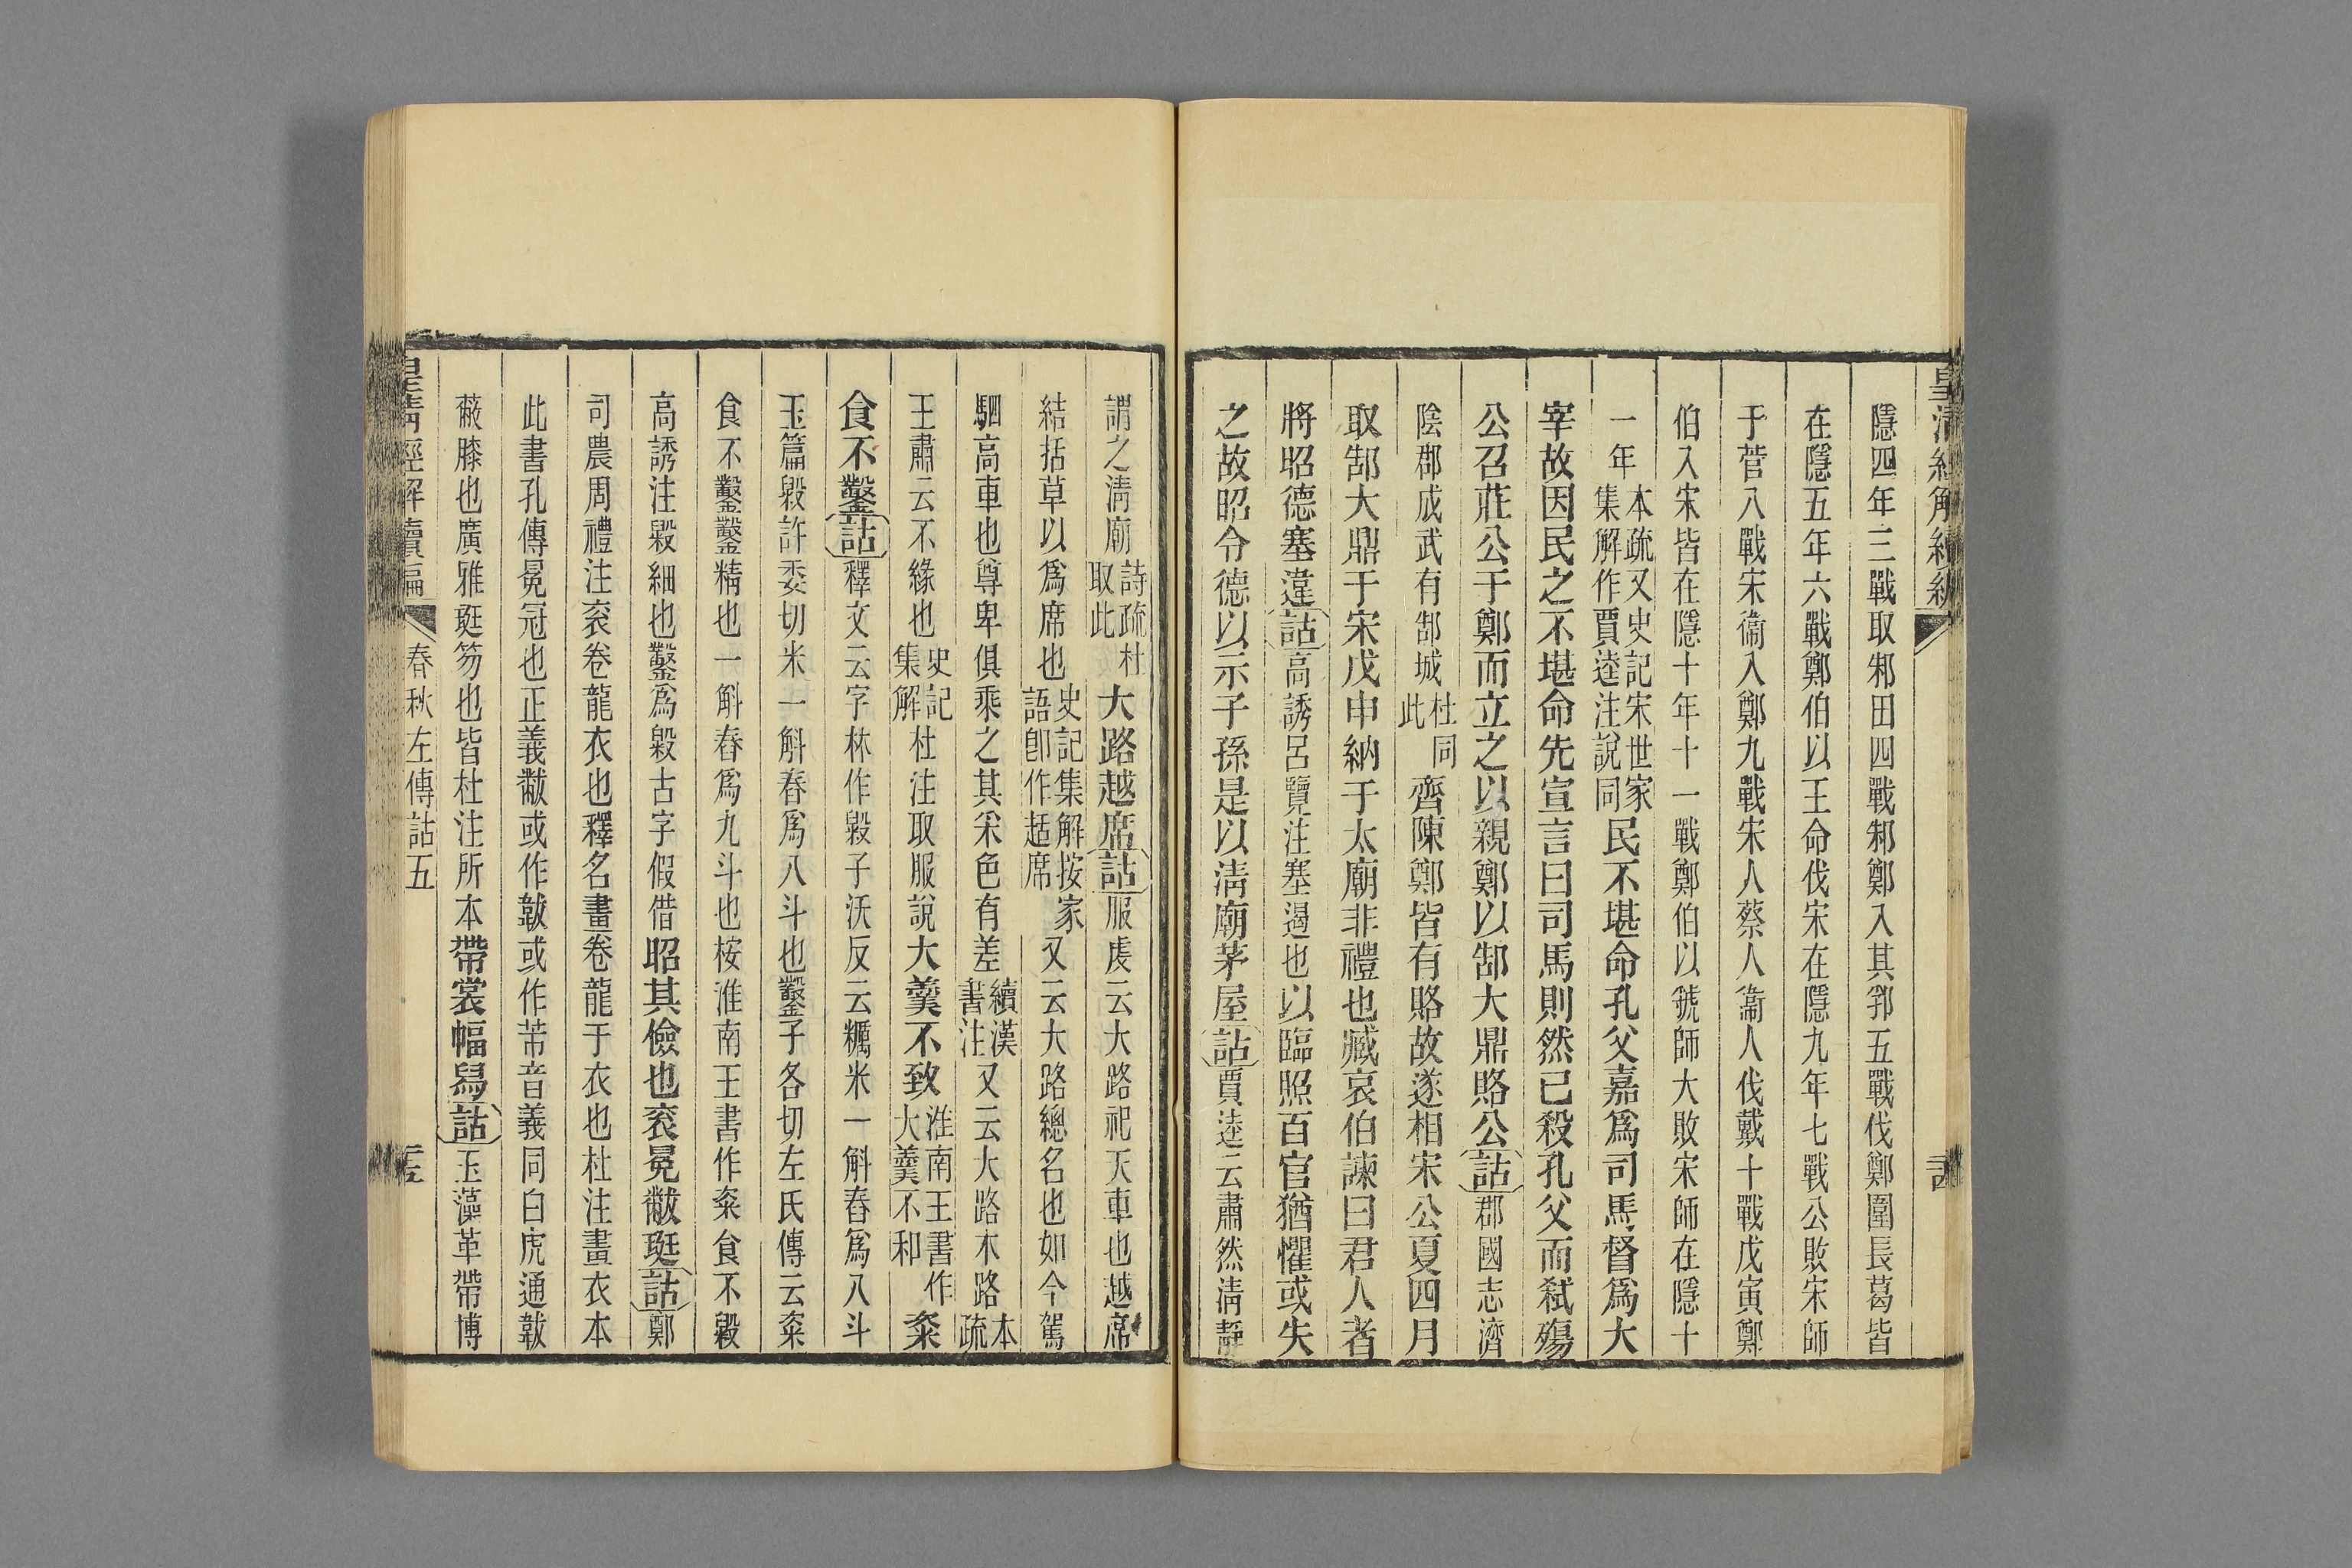 皇清經解續編
隱四年三戰取邾田四戰邾鄭入其郛五戰伐鄭圍長葛皆
在隱五年六戰鄭伯以王命伐宋在隱九年七戰公敗宋師
于菅八戰宋衞入鄭九戰宋人蔡人衞人伐戴十戰戊寅鄭
伯入宋皆在隱十年十一戰鄭伯以虢師大敗宋師在隱十
一年本疏又史記宋世家集解作賈逵注說同民不堪命孔父嘉爲司馬督爲大
宰故因民之不堪命先宣言曰司馬則然已殺孔父而弒殤
公召莊公于鄭而立之以親鄭以郜大鼎賂公詁郡國志濟
陰郡成武有郜城杜同此齊陳鄭皆有賂故遂相宋公夏四月
取郜大鼎于宋戊申納于太廟非禮也臧哀伯諫曰君人者
將昭德塞違詁高誘呂覽注塞遏也以臨照百官猶懼或失
之故昭令德以示子孫是以淸廟茅屋詁賈逵云肅然淸靜
謂之淸廟詩疏杜取此大路越席詁服虔云大路祀天車也越席
結括草以爲席也史記集解按家語卽作趏席又云大路總名也如今駕
駟高車也尊卑俱乘之其采色有差續漢書注又云大路木路本疏
王肅云不緣也史記集解杜注取服說大羹不致淮南王書作大羹不和粢
食不鑿詁釋文云字林作毇子沃反云糲米一斛舂爲八斗
玉篇毇許委切米一斛舂爲八斗也鑿子各切左氏傳云粢
食不鑿鑿精也一斛舂爲九斗也桉淮南王書作粢食不毇
高誘注毇細也鑿爲毇古字假借昭其儉也衮冕黻珽詁鄭
司農周禮注衮卷龍衣也釋名畫卷龍于衣也杜注畫衣本
此書孔傳冕冠也正義黻或作韍或作芾音義同白虎通韍
蔽膝也廣雅珽笏也皆杜注所本帶裳幅舄詁玉藻革帶博
皇淸經解續編 春秋左傳詁五